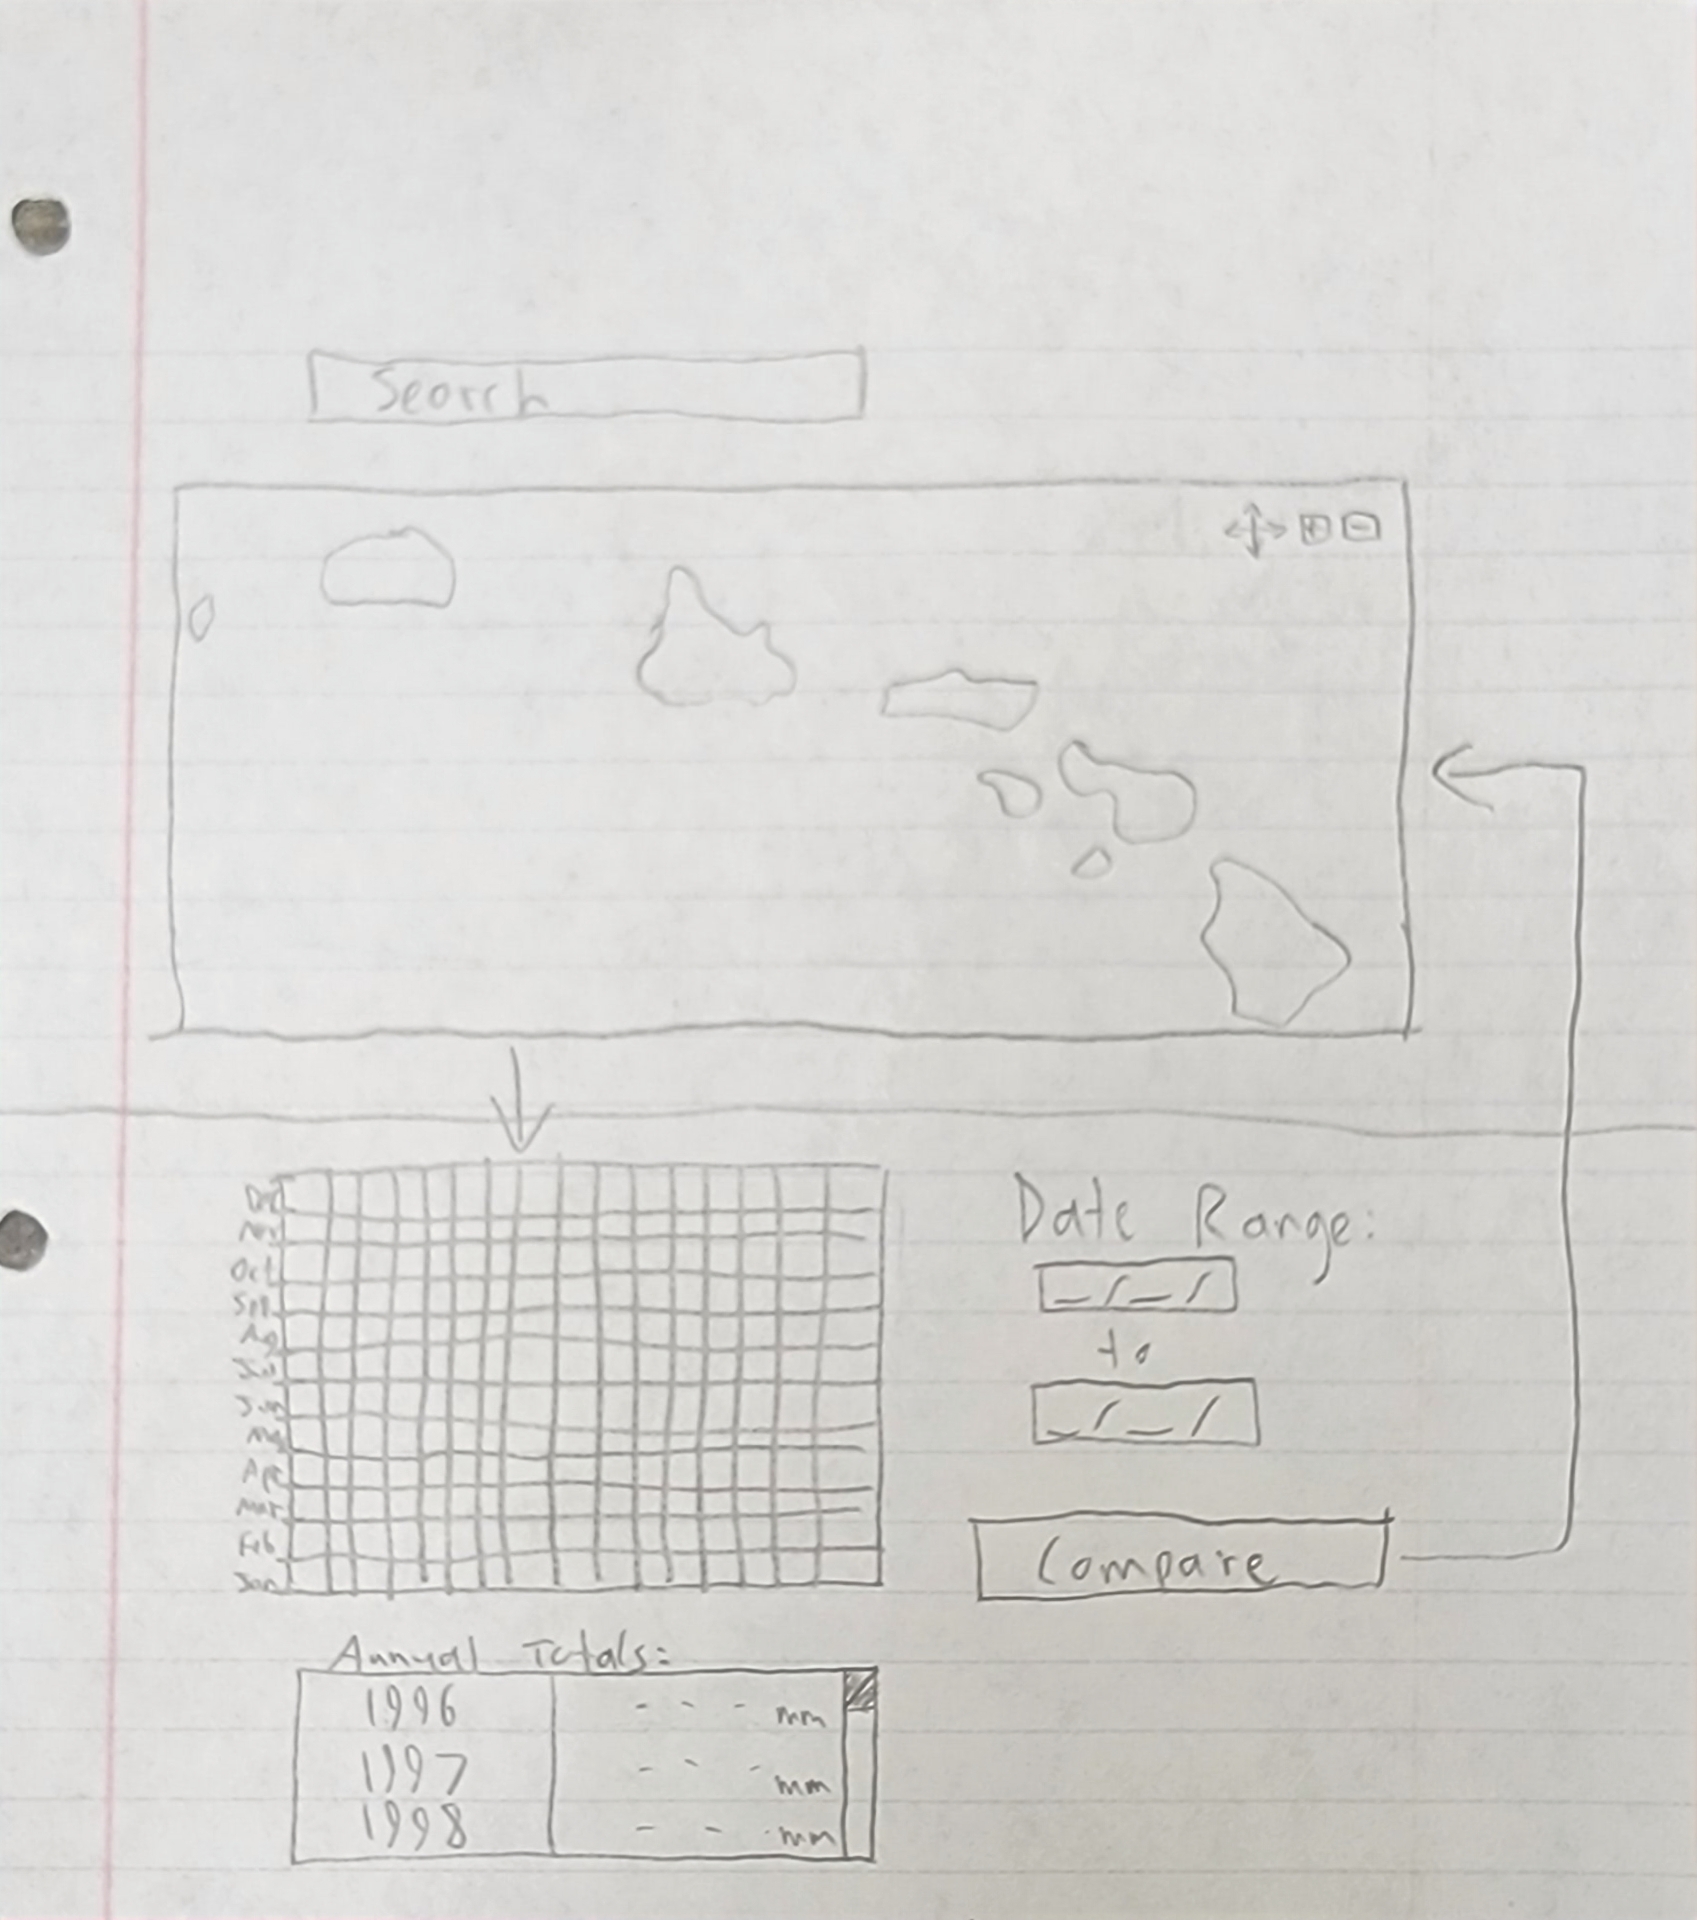 Search
Dec
Nov
Oct
Sep
Ag
Jul
Jun
May
Apr
Mar
Feb
Jan
Date Range:
_/_/
to
_/_/
Compare
Annual Totals:
1996 - - - mm
1997 - - - mm
1998 - - - mm